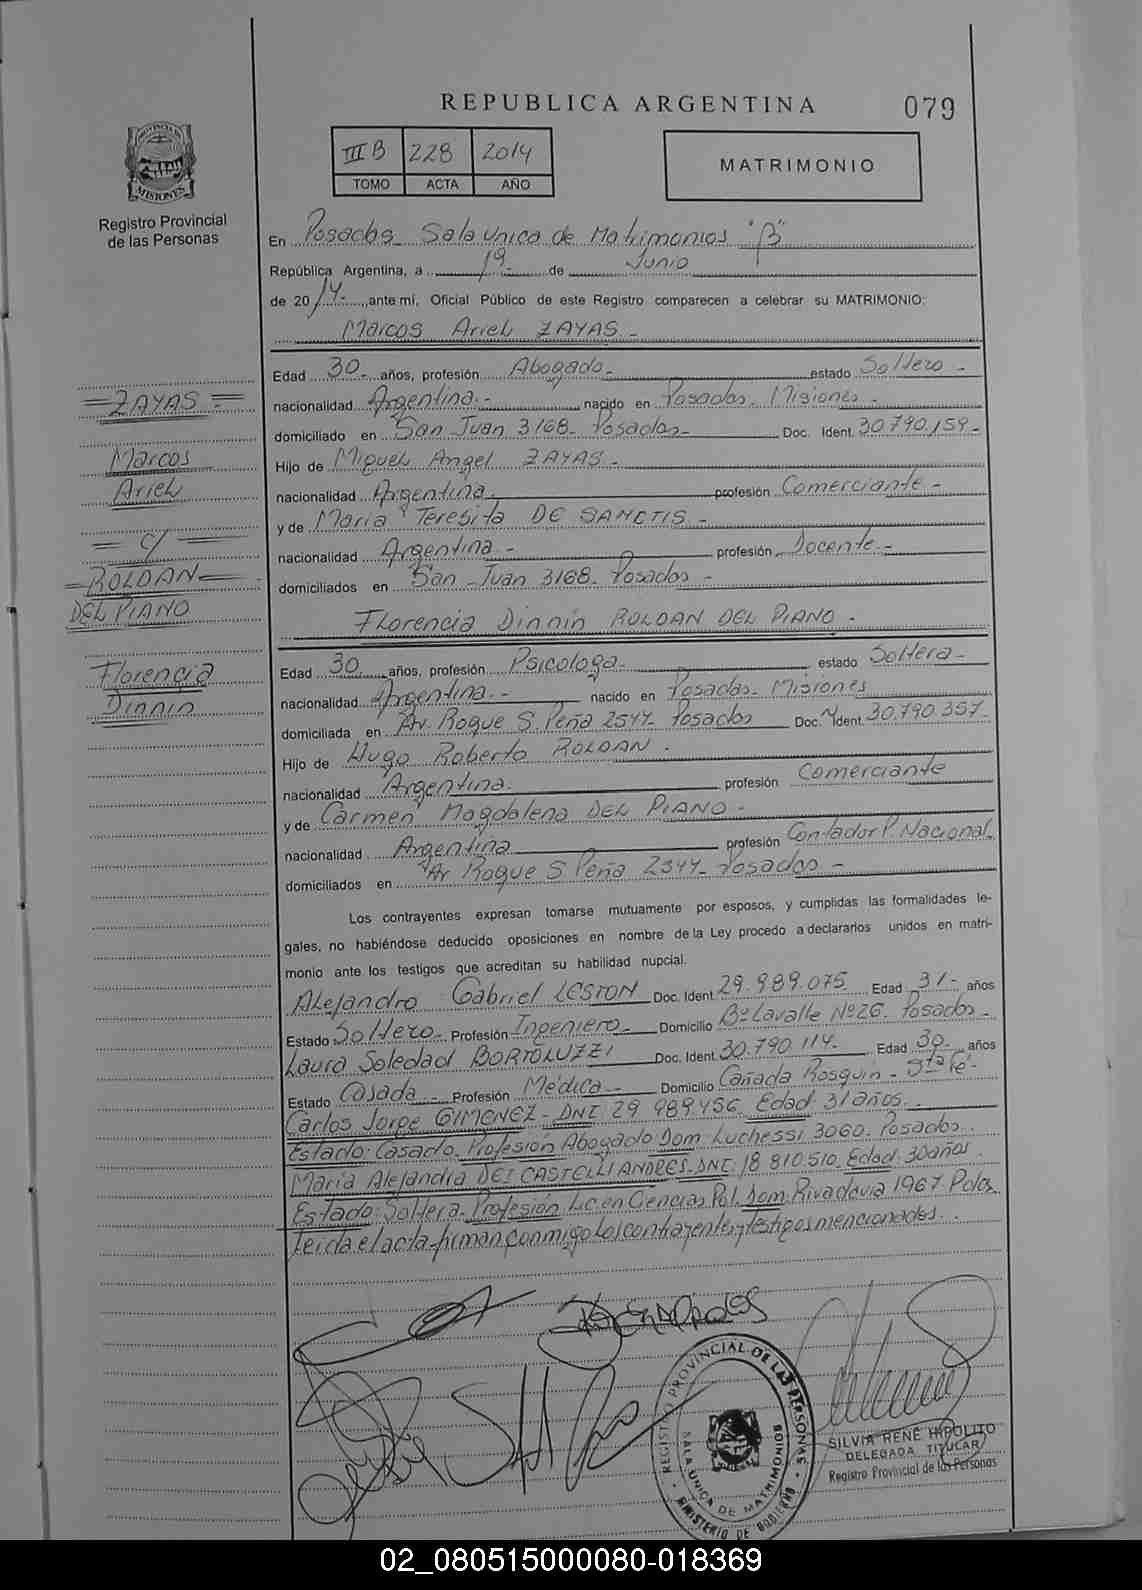 REPUBLICA ARGENTINA
079
PROVINCIA DE MISIONES
Registro Provincial
de las Personas
III B 228 2014
TOMO ACTA AÑO
MATRIMONIO
En Posadas Sala Unica de Matrimonios "B"
República Argentina, a 19 de Junio
de 2014.- ,ante mí, Oficial Público de este Registro comparecen a celebrar su MATRIMONIO:
Marcos Ariel ZAYAS -
Edad 30- años, profesión Abogado- estado Soltero -
nacionalidad Argentina.- nacido en Posadas. Misiones -
domiciliado en San Juan 3168- Posadas- Doc. Ident. 30.790.159-
Hijo de Miguel Angel ZAYAS -
nacionalidad Argentina. profesión Comerciante -
y de Maria Teresita DE SANCTIS -
nacionalidad Argentina - profesión Docente -
domiciliados en San Juan 3168- Posadas -
= ZAYAS =
Marcos
Ariel
= c/ =
= ROLDAN =
DEL PIANO
Florencia
Dinnin
Florencia Dinnin ROLDAN DEL PIANO -
Edad 30 años, profesión Psicologa- estado Soltera -
nacionalidad Argentina.- nacido en Posadas- Misiones
domiciliada en Av. Roque S. Peña 2344- Posadas Doc. Ident. 30.790.357-
Hijo de Hugo Roberto ROLDAN .
nacionalidad Argentina. profesión Comerciante
y de Carmen Magdalena DEL PIANO -
nacionalidad Argentina profesión Contador P. Nacional.
domiciliados en Av Roque S Peña 2344- Posadas -
Los contrayentes expresan tomarse mutuamente por esposos, y cumplidas las formalidades le-
gales, no habiéndose deducido oposiciones en nombre de la Ley procedo a declararlos unidos en matri-
monio ante los testigos que acreditan su habilidad nupcial.
Alejandro Gabriel LESTON Doc. Ident. 29.989.075 Edad 31- años
Estado Soltero- Profesión Ingeniero- Domicilio Bº Lavalle Nº26. Posadas -
Laura Soledad BORTOLUZZI Doc. Ident. 30.790.114- Edad 30 años
Estado Casada - Profesión Médica - Domicilio Cañada Rosquin - Sta Fé-
Carlos Jorge GIMENEZ - DNI 29.989.456 Edad 31 años.
Estado: Casado. Profesión Abogado Dom. Luchessi 3060. Posadas.
Maria Alejandra DEI CASTELLI ANDRES. DNI: 18.810.510. Edad: 30 años.
Estado: Soltera. Profesión Lic. en Ciencias Pol. Dom. Rivadavia 1967. Pdas.
Leida el acta firman conmigo los contrayentes y testigos mencionados.
REGISTRO PROVINCIAL DE LAS PERSONAS
SALA UNICA DE MATRIMONIOS
MINISTERIO DE GOBIERNO
SILVIA RENE HIPOLITO
DELEGADA TITULAR
Registro Provincial de las Personas
02_080515000080-018369